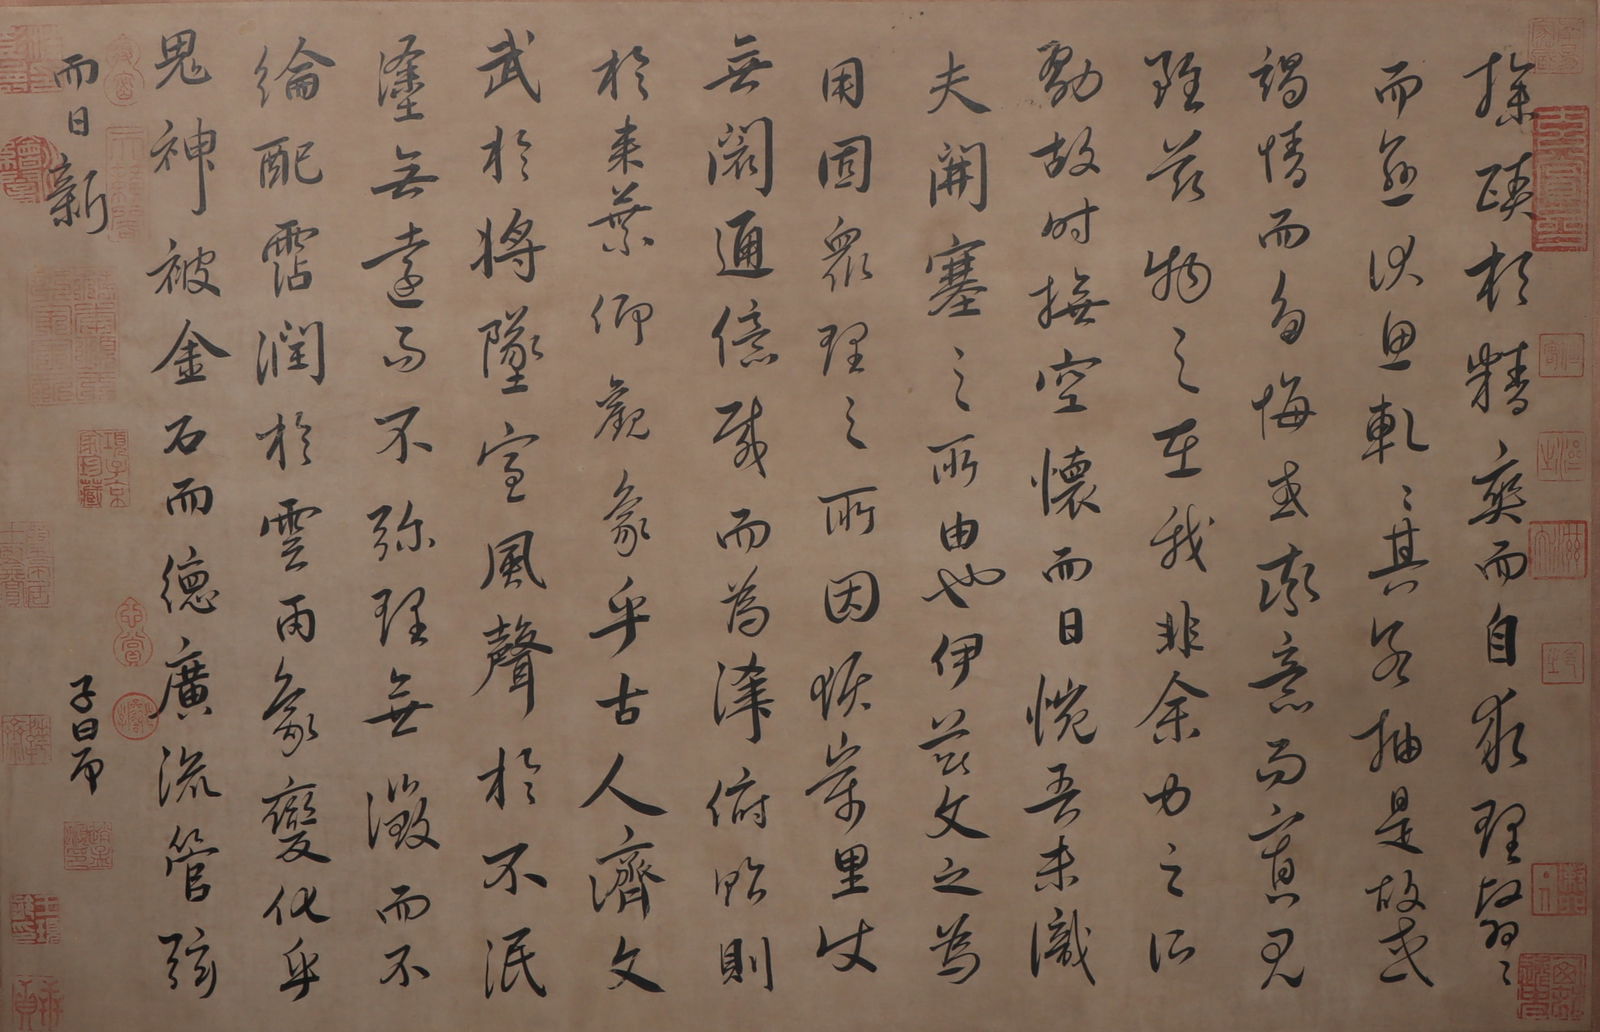 探賾於精爽而自求理翳〻
而愈伏思軋〻其若抽是故或
竭情而多悔或率意而寡尤
雖茲物之在我非余力之所
勠故時撫空懷而自惋吾未識
夫開塞之所由也伊茲文之為
用固眾理之所因恢萬里使
無閡通億載而為津俯貽則
於來葉仰觀象乎古人濟文
武於將墜宣風聲於不泯
塗無遠而不彌理無微而不
綸配霑潤於雲雨象變化乎
鬼神被金石而德廣流管弦
而日新
子昂